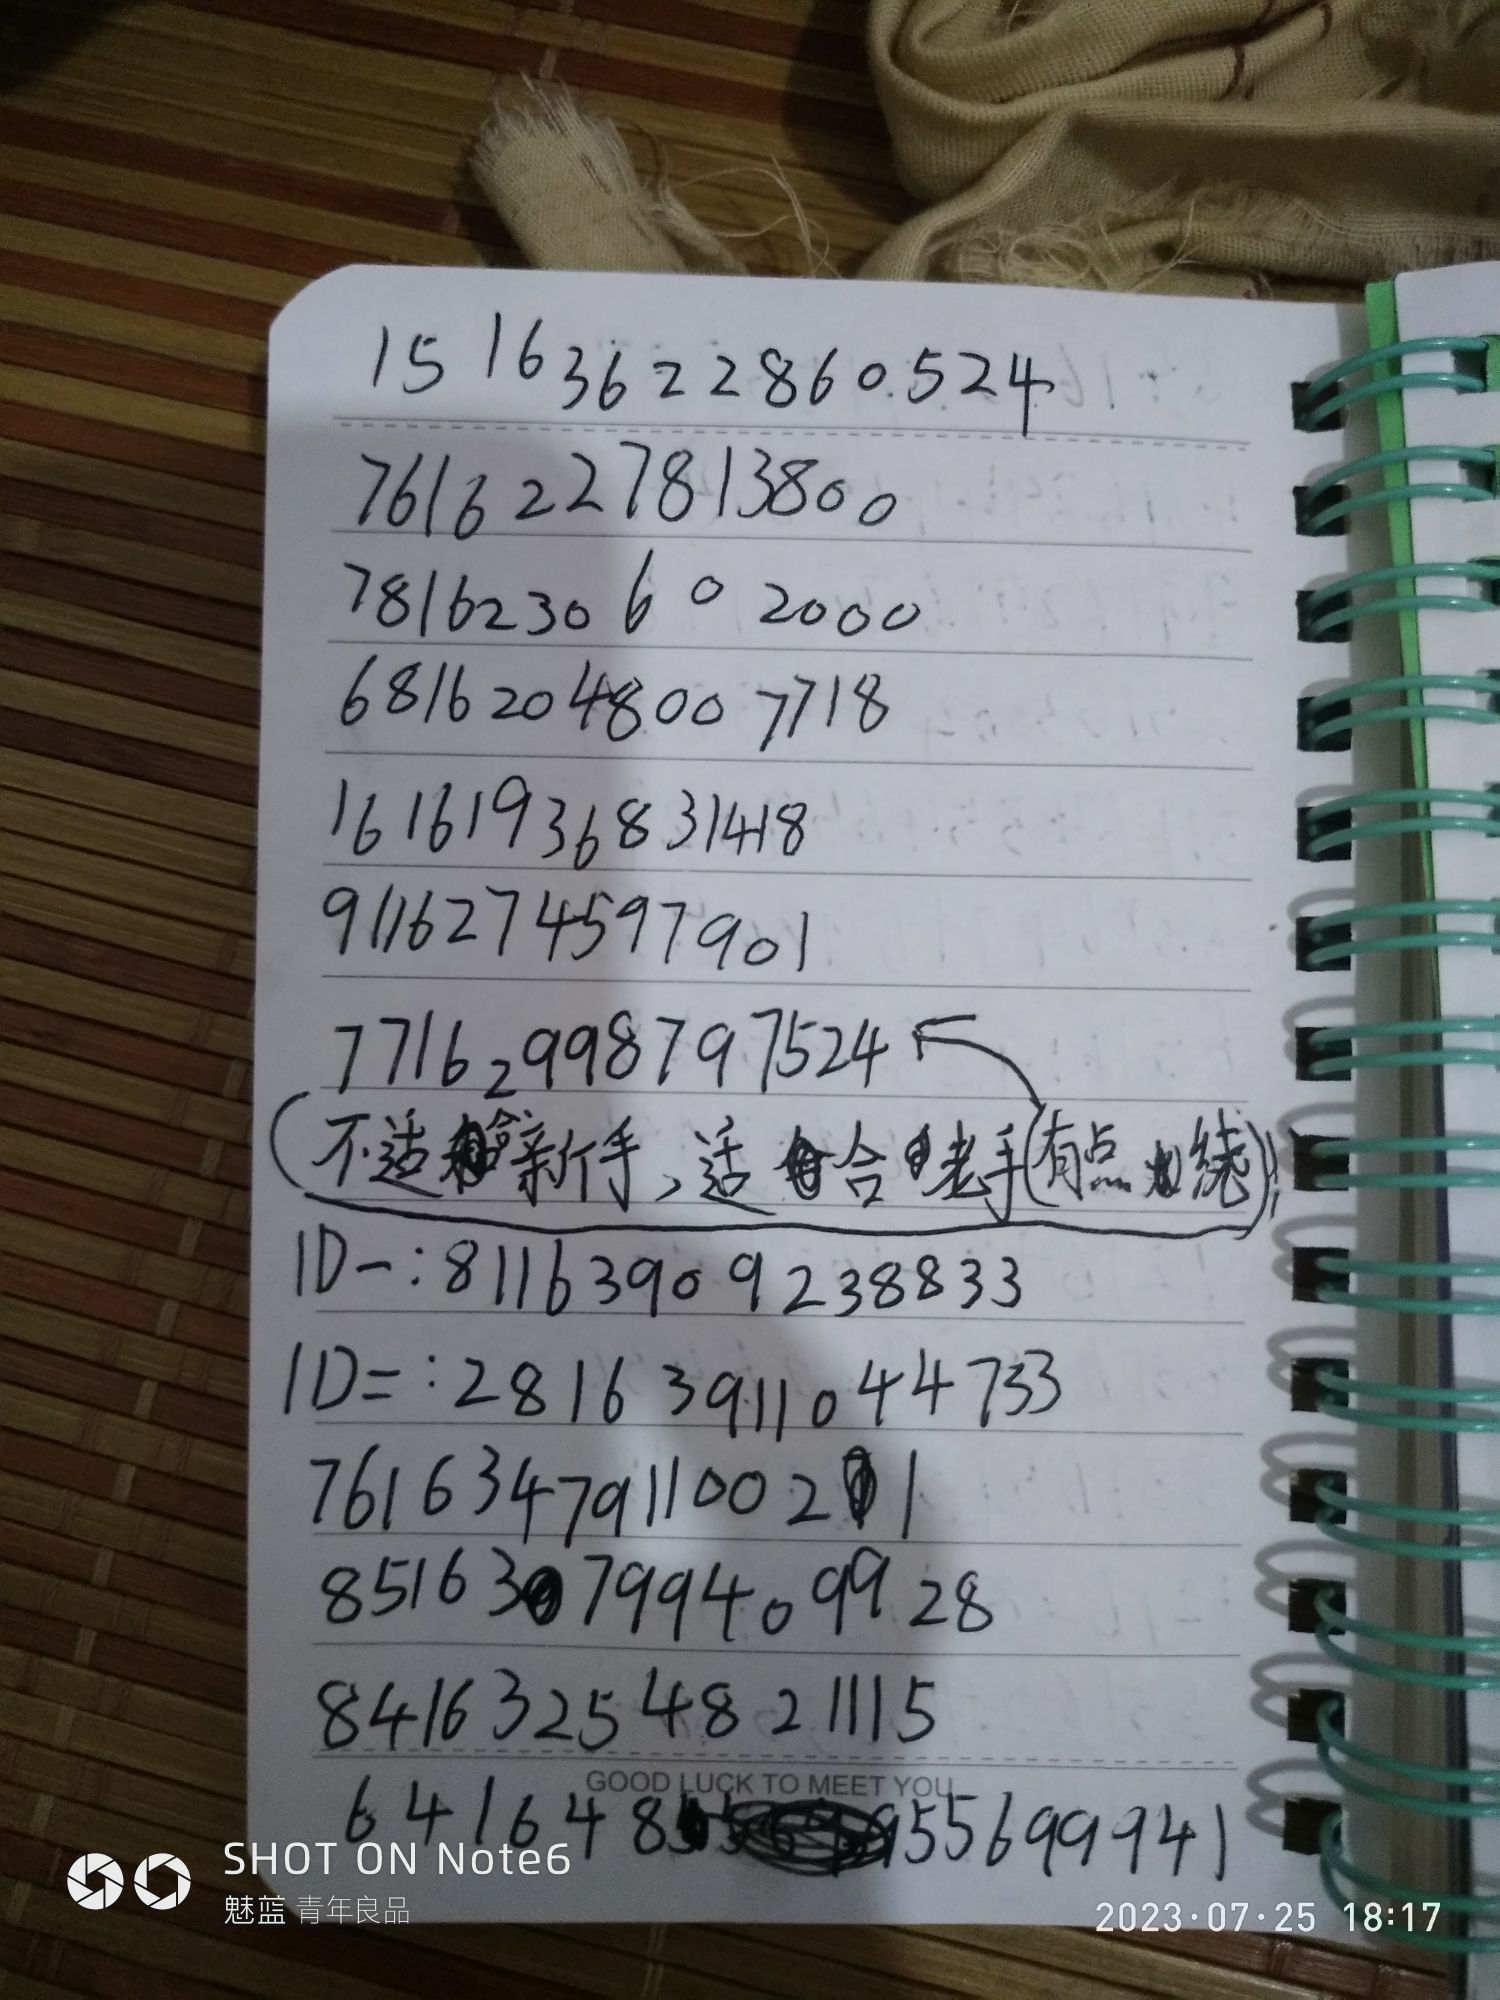 1516362286 0524
7616227813800
781623060 2000
6816204800 7718
1616193683 1418
9116274597901
77162998797524
(不适合新手,适合老手(有点绕))
ID一:81163909238833
ID二:28163911044733
76163479110021
8516307994099 28
84163254821115
GOOD LUCK TO MEET YOU
6416485569 9941
SHOT ON Note6
魅蓝 青年良品
2023·07·25 18:17